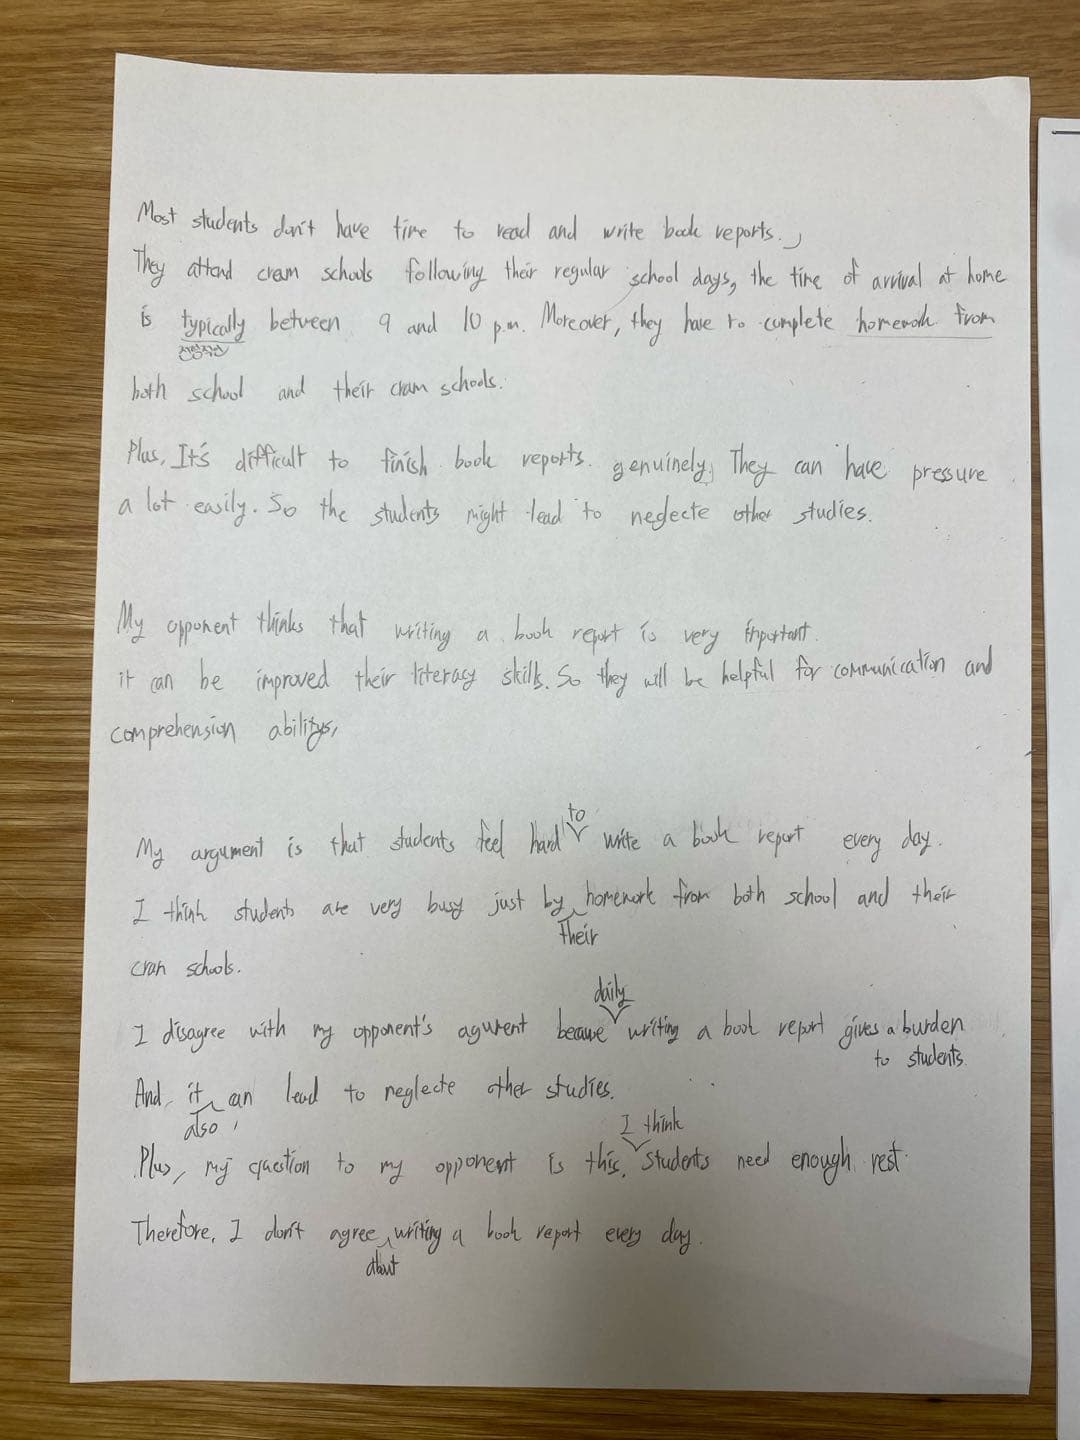 Most students don't have time to read and write book reports.
They attend cram schools following their regular school days, the time of arrival at home
is typically between 9 and 10 p.m. Moreover, they have to complete homework from
전형적인
both school and their cram schools.
Plus, It's difficult to finish book reports genuinely. They can have pressure
a lot easily. So the students might lead to neglecte other studies.
My opponent thinks that writing a book report is very important.
it can be improved their literacy skills. So they will be helpful for communication and
comprehension abilitys,
to
My argument is that students feel hard write a book report every day.
I think students are very busy just by homework from both school and their
their
cram schools.
daily
I disagree with my opponent's agurent because writing a book report gives a burden
to students.
And, it can lead to neglecte other studies.
also
I think
Plus, my question to my opponent is this. Students need enough rest.
Therefore, I don't agree writing a book report every day.
about